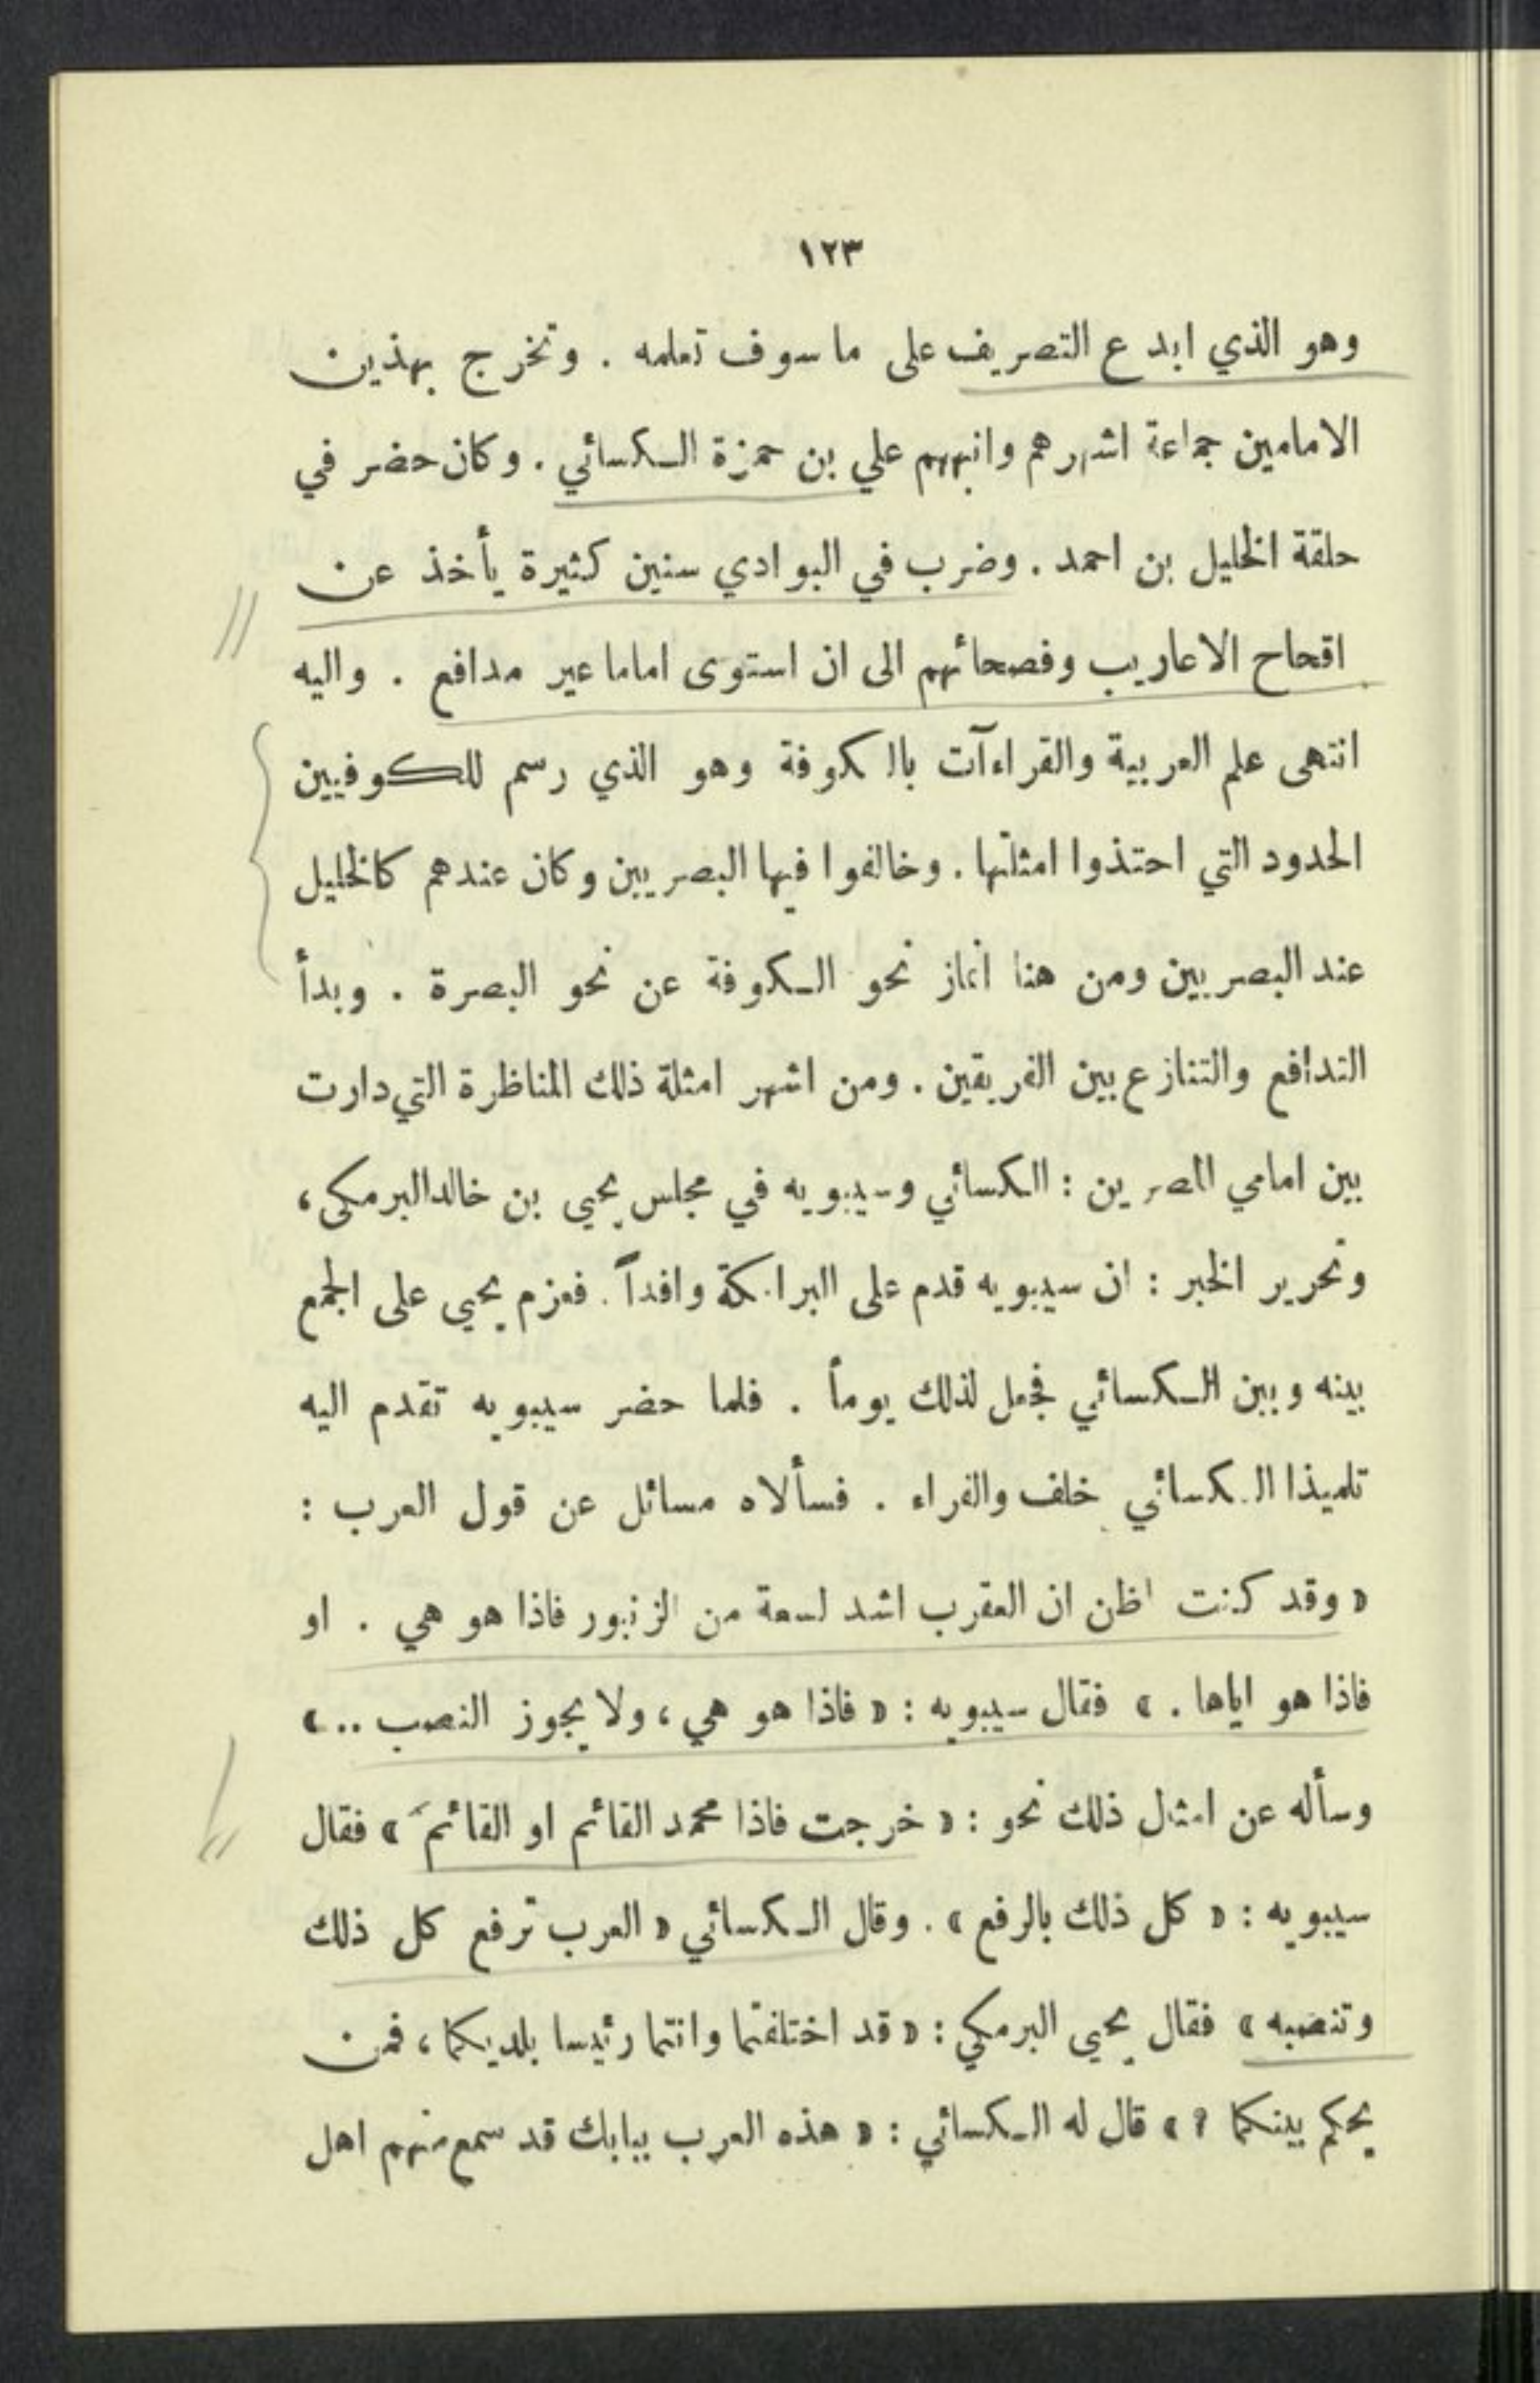 ١٢٣
وهو الذي ابدع التصريف على ما سوف تعلمه . وتخرج بهذين
الامامين جماعة اشهرهم وانبههم علي بن حمزة الكسائي . وكان حضر في
حلقة الخليل بن احمد . وضرب في البوادي سنين كثيرة يأخذ عن
اقحاح الاعاريب وفصحائهم الى ان استوى اماما غير مدافع . واليه
انتهى علم العربية والقراءآت بالكوفة وهو الذي رسم للكوفيين
الحدود التي احتذوا امثلتها . وخالفوا فيها البصريين وكان عندهم كالخليل
عند البصريين ومن هنا انماز نحو الكوفة عن نحو البصرة . وبدأ
التدافع والتنازع بين الفريقين . ومن اشهر امثلة ذلك المناظرة التي دارت
بين امامي المصرين : الكسائي وسيبويه في مجلس يحيى بن خالد البرمكى ،
وتحرير الخبر : ان سيبويه قدم على البرامكة وافداً . فعزم يحيى على الجمع
بينه وبين الكسائي فجعل لذلك يوماً . فلما حضر سيبويه تقدم اليه
تلميذا الكسائي خلف والفراء . فسألاه مسائل عن قول العرب :
« وقد كنت اظن ان العقرب اشد لسعة من الزنبور فاذا هو هي . او
فاذا هو اياها . » فقال سيبويه : « فاذا هو هي ، ولا يجوز النصب .. »
وسأله عن امثال ذلك نحو : « خرجت فاذا محمد القائم او القائمَ » فقال
سيبويه : « كل ذلك بالرفع » . وقال الكسائي « العرب ترفع كل ذلك
وتنصبه » فقال يحيى البرمكي : « قد اختلفتما وانتما رئيسا بلديكما ، فمن
يحكم بينكما ؟ » قال له الكسائي : « هذه العرب ببابك قد سمع منهم اهل